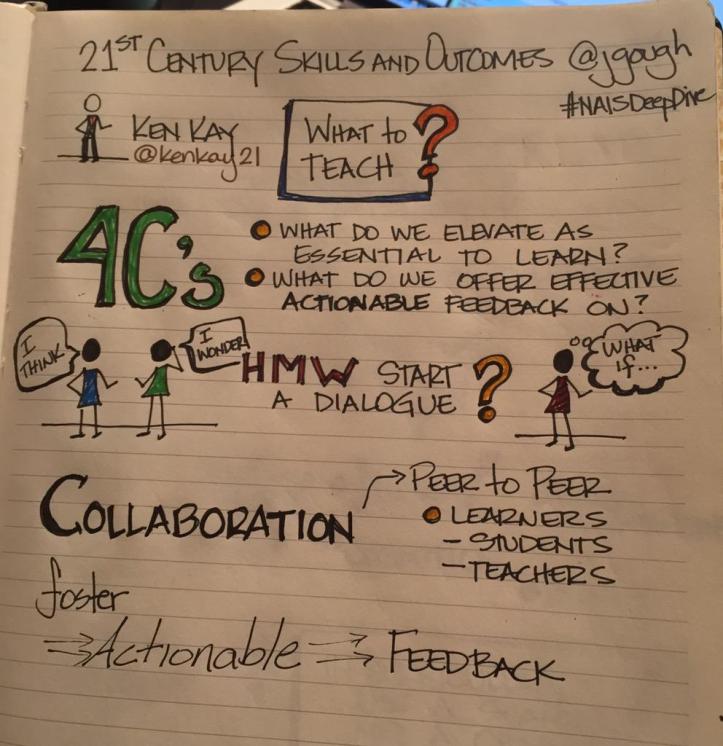 21ST CENTURY SKILLS AND OUTCOMES @jgough
#NAISDeepDive
KEN KAY
@kenkay21
WHAT to
TEACH ?
4C's
WHAT DO WE ELEVATE AS
ESSENTIAL TO LEARN?
WHAT DO WE OFFER EFFECTIVE
ACTIONABLE FEEDBACK ON?
I
THINK
I
WONDER
HMW START
A DIALOGUE ?
WHAT
if...
COLLABORATION
PEER to PEER
LEARNERS
- STUDENTS
- TEACHERS
foster
⇒ Actionable ⇒ FEEDBACK